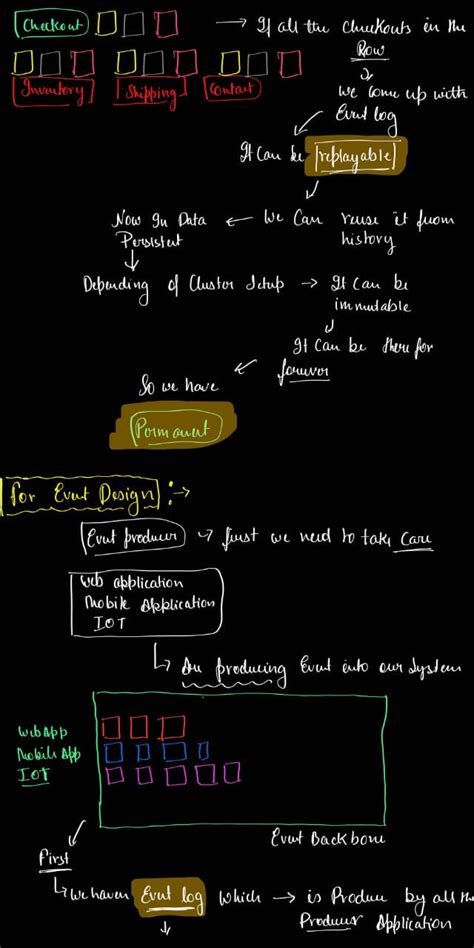 Checkout → If all the Checkouts in the
Row
we come up with
Event log
Inventory Shipping Contact
It Can be replayable
Now In Data ← We Can reuse it from
Persistent history
Depending of Cluster Setup → It Can be
immutable
It Can be there for
forever
So we have
Permanent
For Event Design :→
Event producer → first we need to take Care
Web application
Mobile Application
IOT
Are producing Event into our System
WebApp
Mobile App
IOT
Event Backbone
First
We haven Event log which → is Produce by all the
Producer Application